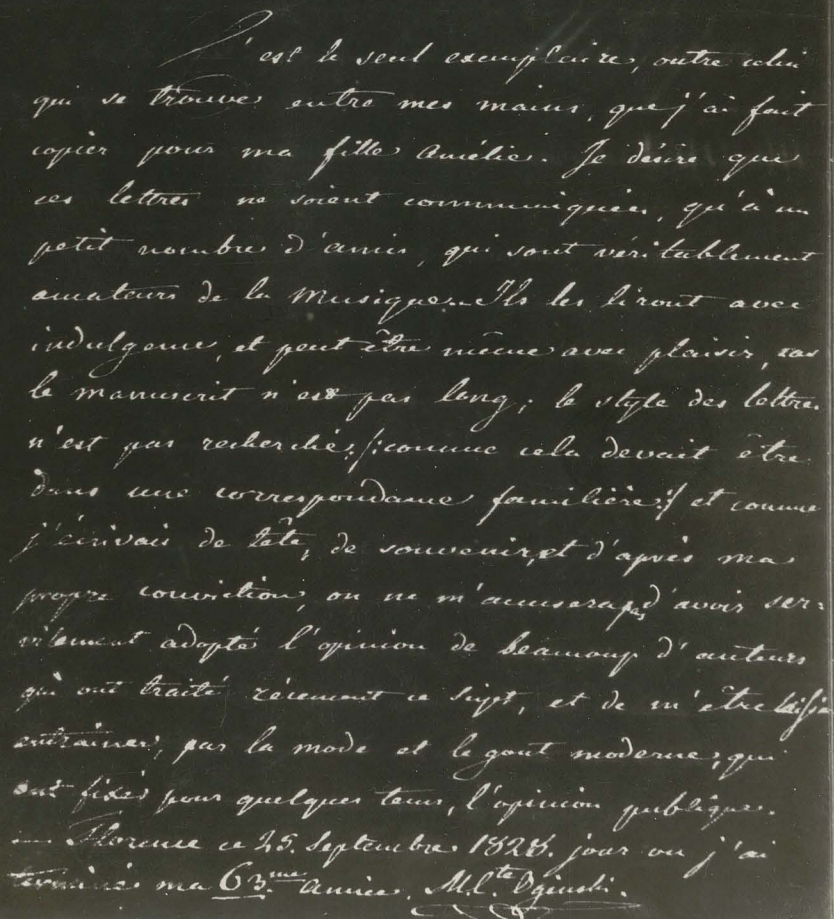 C'est le seul exemplaire, outre celui
qui se trouve entre mes mains, que j'ai fait
copier pour ma fille Amélie. Je désire que
ces lettres ne soient communiquées, qu'à un
petit nombre d'amis, qui sont véritablement
amateurs de la musique. Ils les liront avec
indulgence, et peut être même avec plaisir, car
le manuscrit n'est pas long; le style des lettres
n'est pas recherché, /:comme cela devait être
dans une correspondance familière:/ et comme
j'écrivais de tête, de souvenir, et d'après ma
propre conviction, on ne m'accusera pas d'avoir ser=
vilement adopté l'opinion de beaucoup d'auteurs
qui ont traité récemment ce sujet, et de m'être laissé
entrainer, par la mode et le gout moderne, qui
ont fixés pour quelques tems, l'opinion publique.
Florence ce 25. Septembre 1828. jour où j'ai
terminé ma 63.me année. M. C.te Oginski.